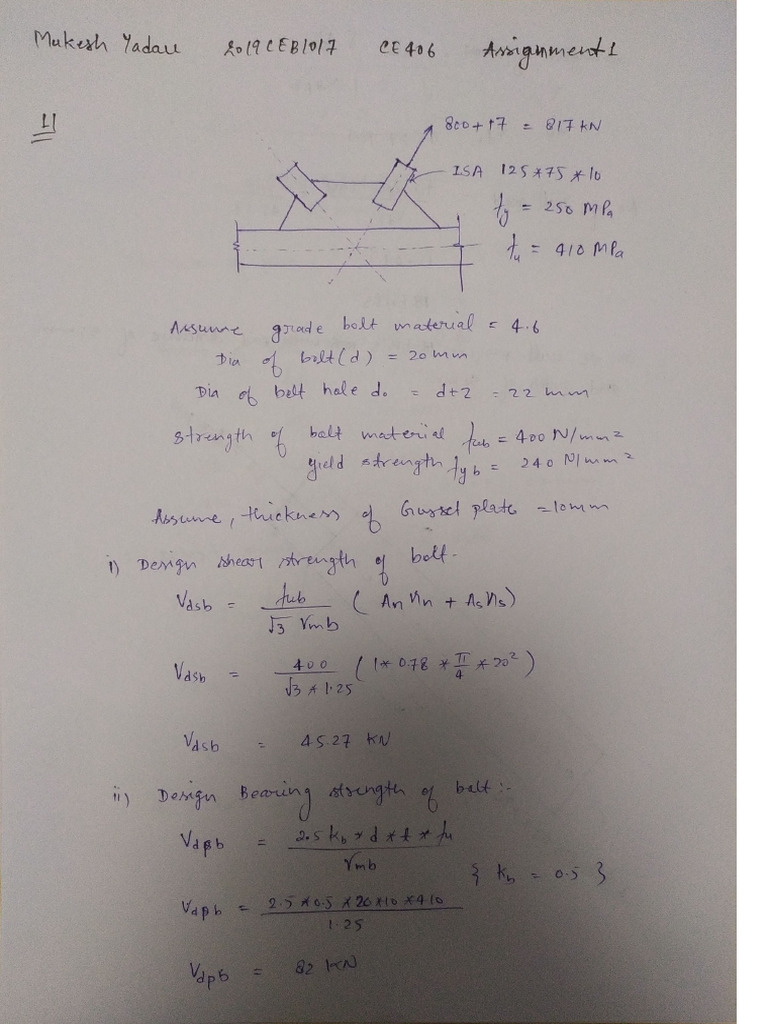 Mukesh Yadav 2019CEB1017 CE406 Assignment 1
1]
800+17 = 817 kN
ISA 125*75*10
fy = 250 MPa
fu = 410 MPa
Assume grade bolt material = 4.6
Dia of bolt(d) = 20mm
Dia of bolt hole do = d+2 = 22 mm
Strength of bolt material fub = 400 N/mm²
yield strength fyb = 240 N/mm²
Assume, thickness of Gusset plate = 10mm
i) Design shear strength of bolt.
Vdsb = fub / √3 γmb ( An nn + As ns)
Vdsb = 400 / √3 * 1.25 (1* 0.78 * π/4 * 20²)
Vdsb = 45.27 KN
ii) Design Bearing strength of bolt:-
Vdpb = 2.5 kb * d * t * fu / γmb
{ Kb = 0.5 }
Vdpb = 2.5 * 0.5 * 20 * 10 * 410 / 1.25
Vdpb = 82 KN